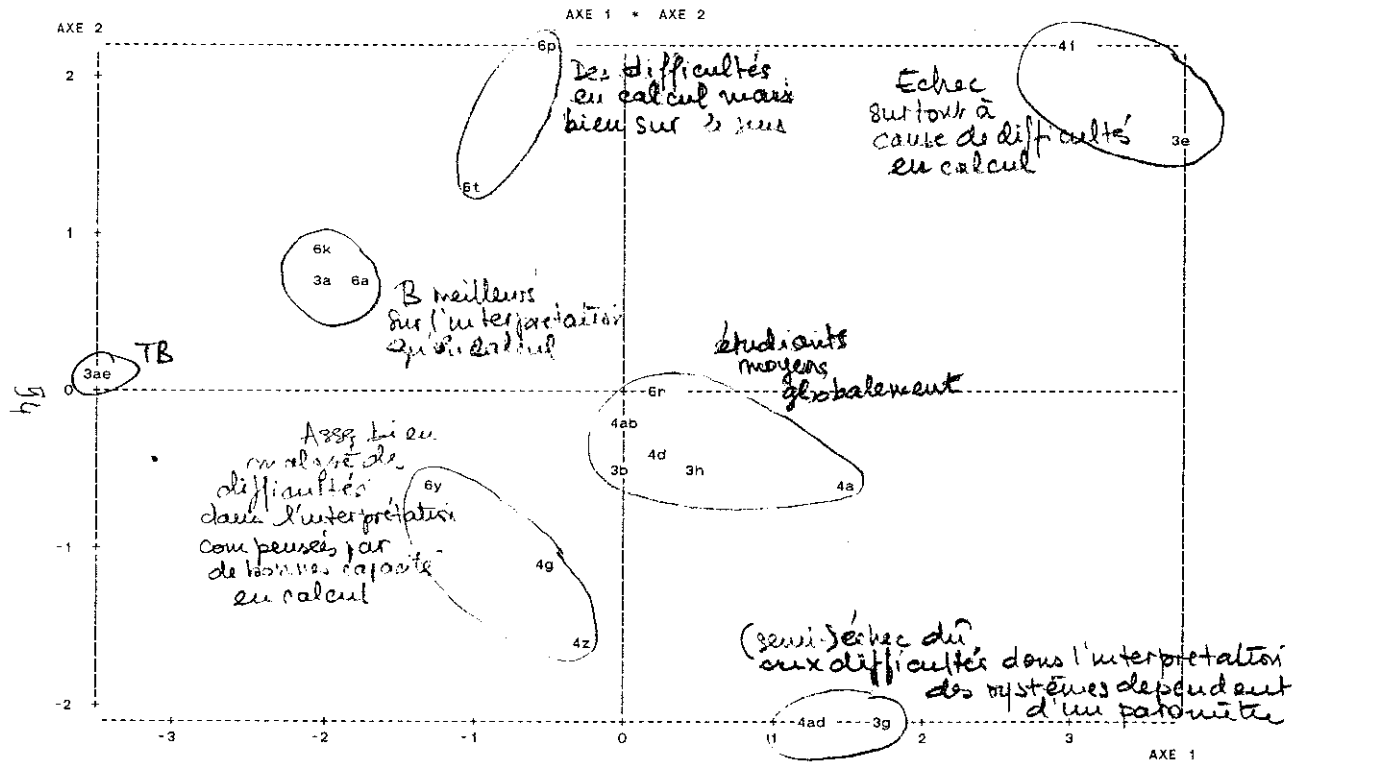 AXE 1 * AXE 2
AXE 2
6p
41
2
Des difficultés
en calcul mais
bien sur le sens
Echec
surtout à
cause de difficultés
en calcul
3e
6t
1
6k
3a 6a
B meilleurs
sur l'interprétation
qu'en calcul
TB
3ae
0
54
étudiants
moyens
globalement
6r
4ab
4d
3b 3h
4a
Assez bien
malgré des
difficultés
dans l'interprétation
compensés par
de bonnes capacité
en calcul
6y
-1
4g
4z
(semi-)échec dû
aux difficultés dans l'interprétation
des systèmes dependent
d'un paramètre
-2
4ad 3g
-3 -2 -1 0 1 2 3
AXE 1